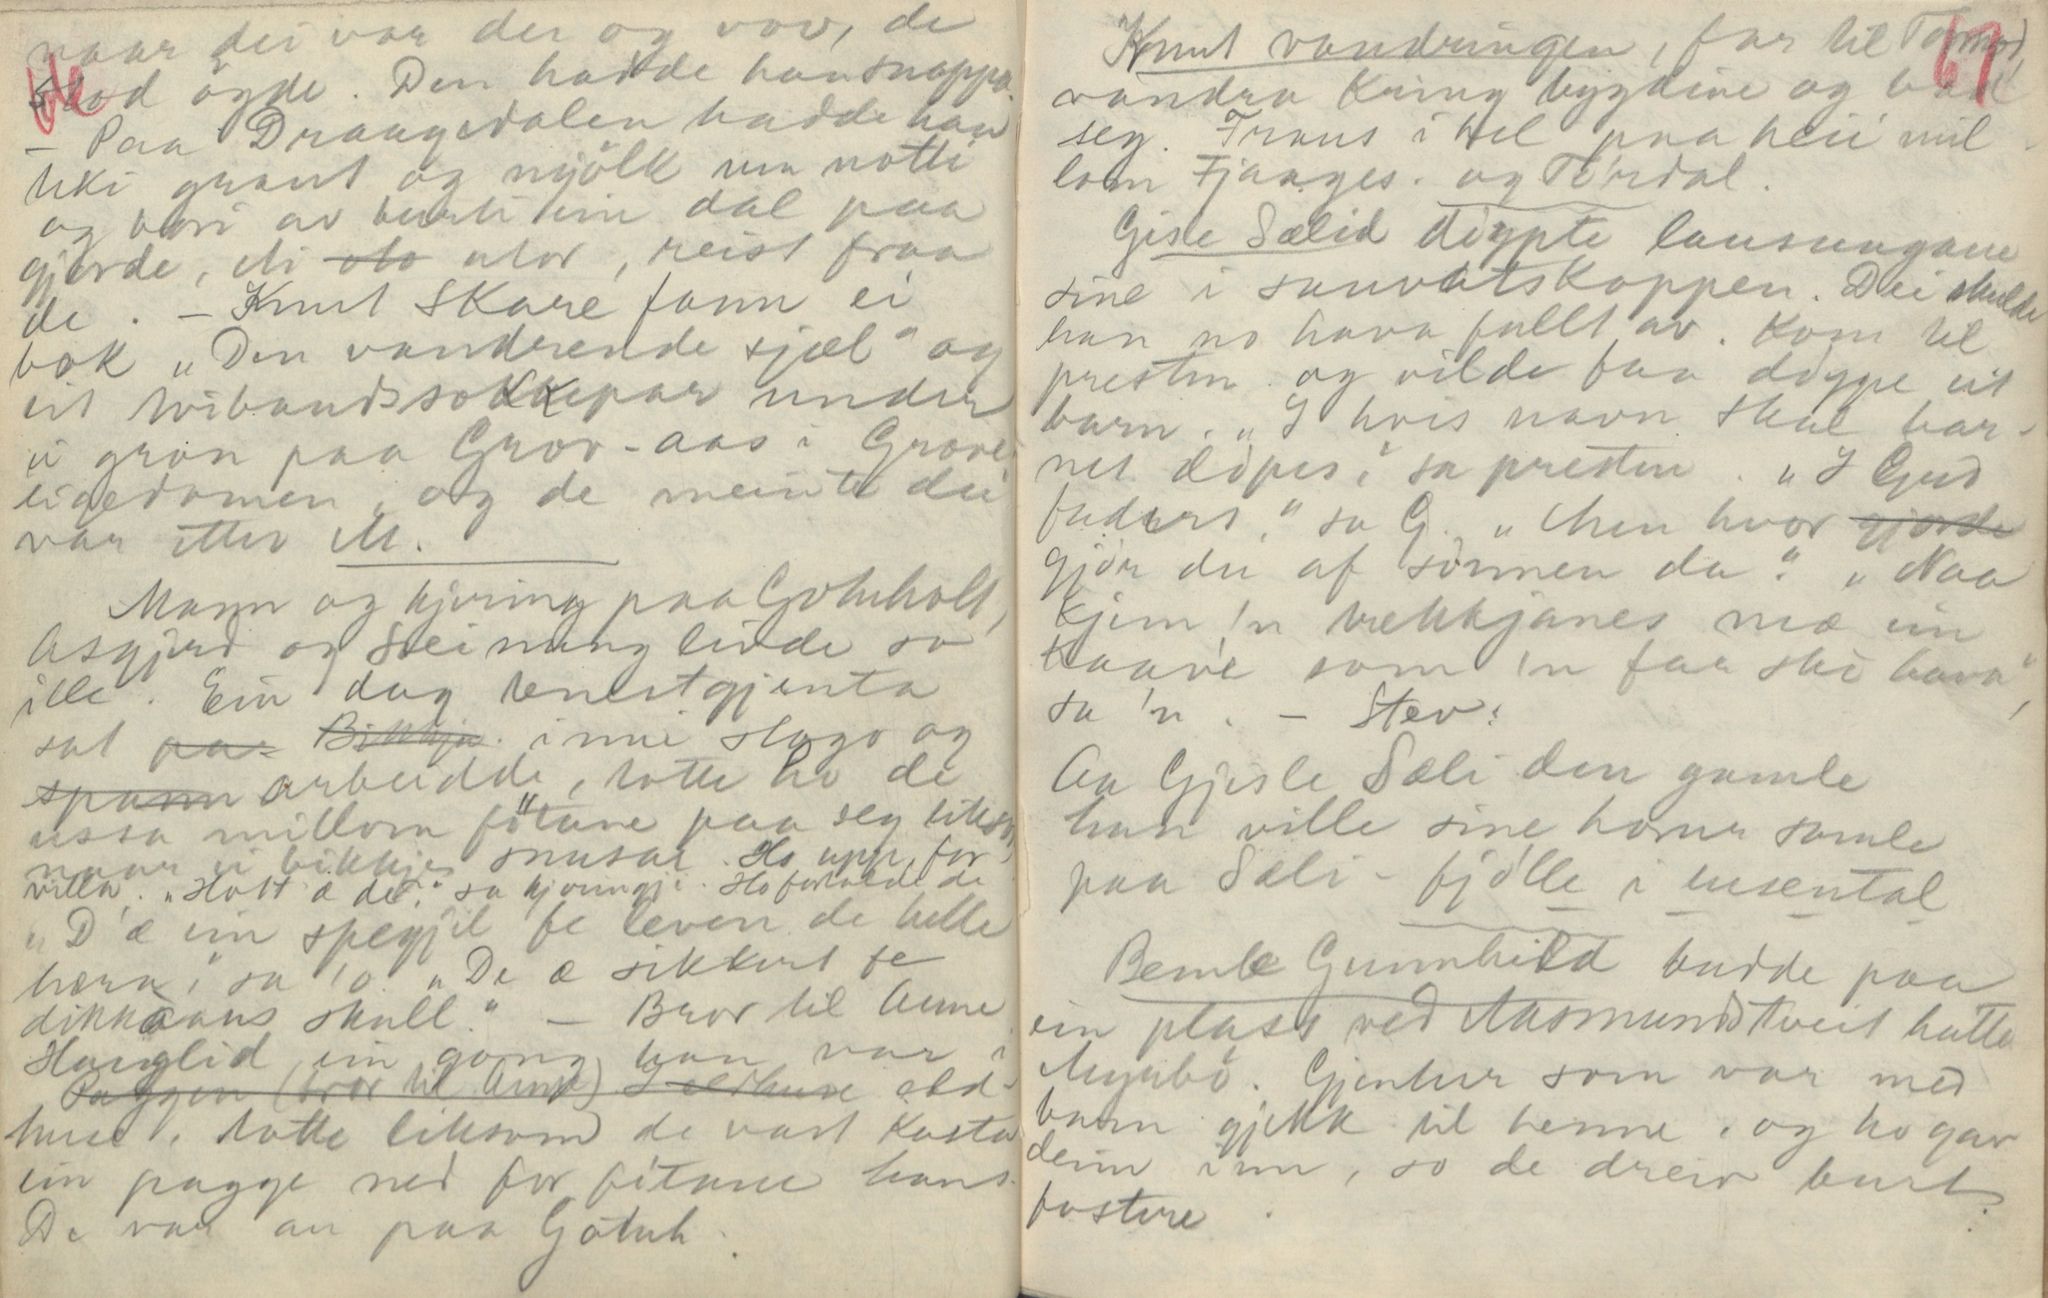 66
naar dei var der og vov, de
stod øgde. Den hadde han snappa.
– Paa Draagedalen hadde han
teki graut og mjölk um notti
og bori av burti ein dal paa
gjorde, eti sto utor, reist fraa
de. – Knut Skare fann ei
bok „Den vandrende sjæl" og
eit tvibandssokkepar under
ei gron paa Grov-aas i Grovei
eigedomen, og de meinte dei
var etter M.
Mann og kjering paa Gotuholt,
Asgjerd og Steinung livde so
ille. Ein dag tenestgjenta
sat paa Bikkja inni stogo og
spann arbeidde, totte ho de
ussa millom føtane paa seg likso
naar ei bikkje snusar. Ho upp, for-
villa. „Hott æ de?" sa kjeringji. Ho fortalde de
„D'æ ein spegjil fe leven de helle
hæra", sa 'o. „De æ sikkert fe
dikkaans skull." – Bror til Anne
Hauglid ein gong han var i
Paggen (bror til Anne) I eldhuse eld-
huse, totte liksom de vart kasta
ein pagge ned for føtane hans.
De var au paa Gotuh.
67
Knut vandringen, far til Tormod,
vandra kring bygdine og bad
seg. Fraus i hel paa heii mil-
lom Fjaages. og Tørdal.
Gisle Sælid døypte lausungane
sine i sauvatskoppen. Dei skulde
han no hava fullt av. Kom til
presten og vilde faa døype eit
barn. „I hvis navn skal bar-
net døpes", sa presten. „I Gud
faders," sa G. „Men hvor gjorde
gjør du af sønnen da?" „Naa
kjem 'n trekkjanes mæ ein
staave som 'n faa ski hava",
sa 'n. – Stev:
Aa Gjisle Sæli den gamle
han ville sine horur samle
paa Sæli-fjølle i tusental
Bemle Gunnhild budde paa
ein plass ved Aasmundstveit hatte
Myrbø. Gjentur som var med
barn gjekk til henne, og ho gav
deim inn, so de dreiv burt
fostre.